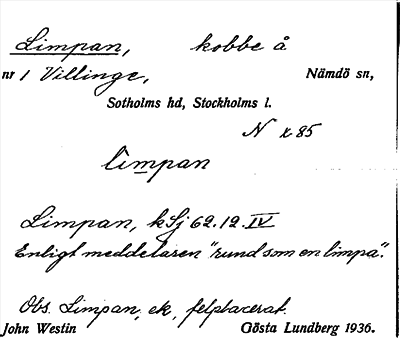 Limpan, kobbe å
nr 1 Villinge, Nämdö sn,
Sotholms hd, Stockholms l.
N x 85
limpan
Limpan, kSj 62.12.IV
Enligt meddelaren "rund som en limpa".
Obs. Limpan, ek, felplacerat.
John Westin Gösta Lundberg 1936.